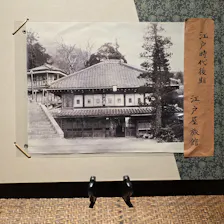 江戸時代後期
江戸屋旅館